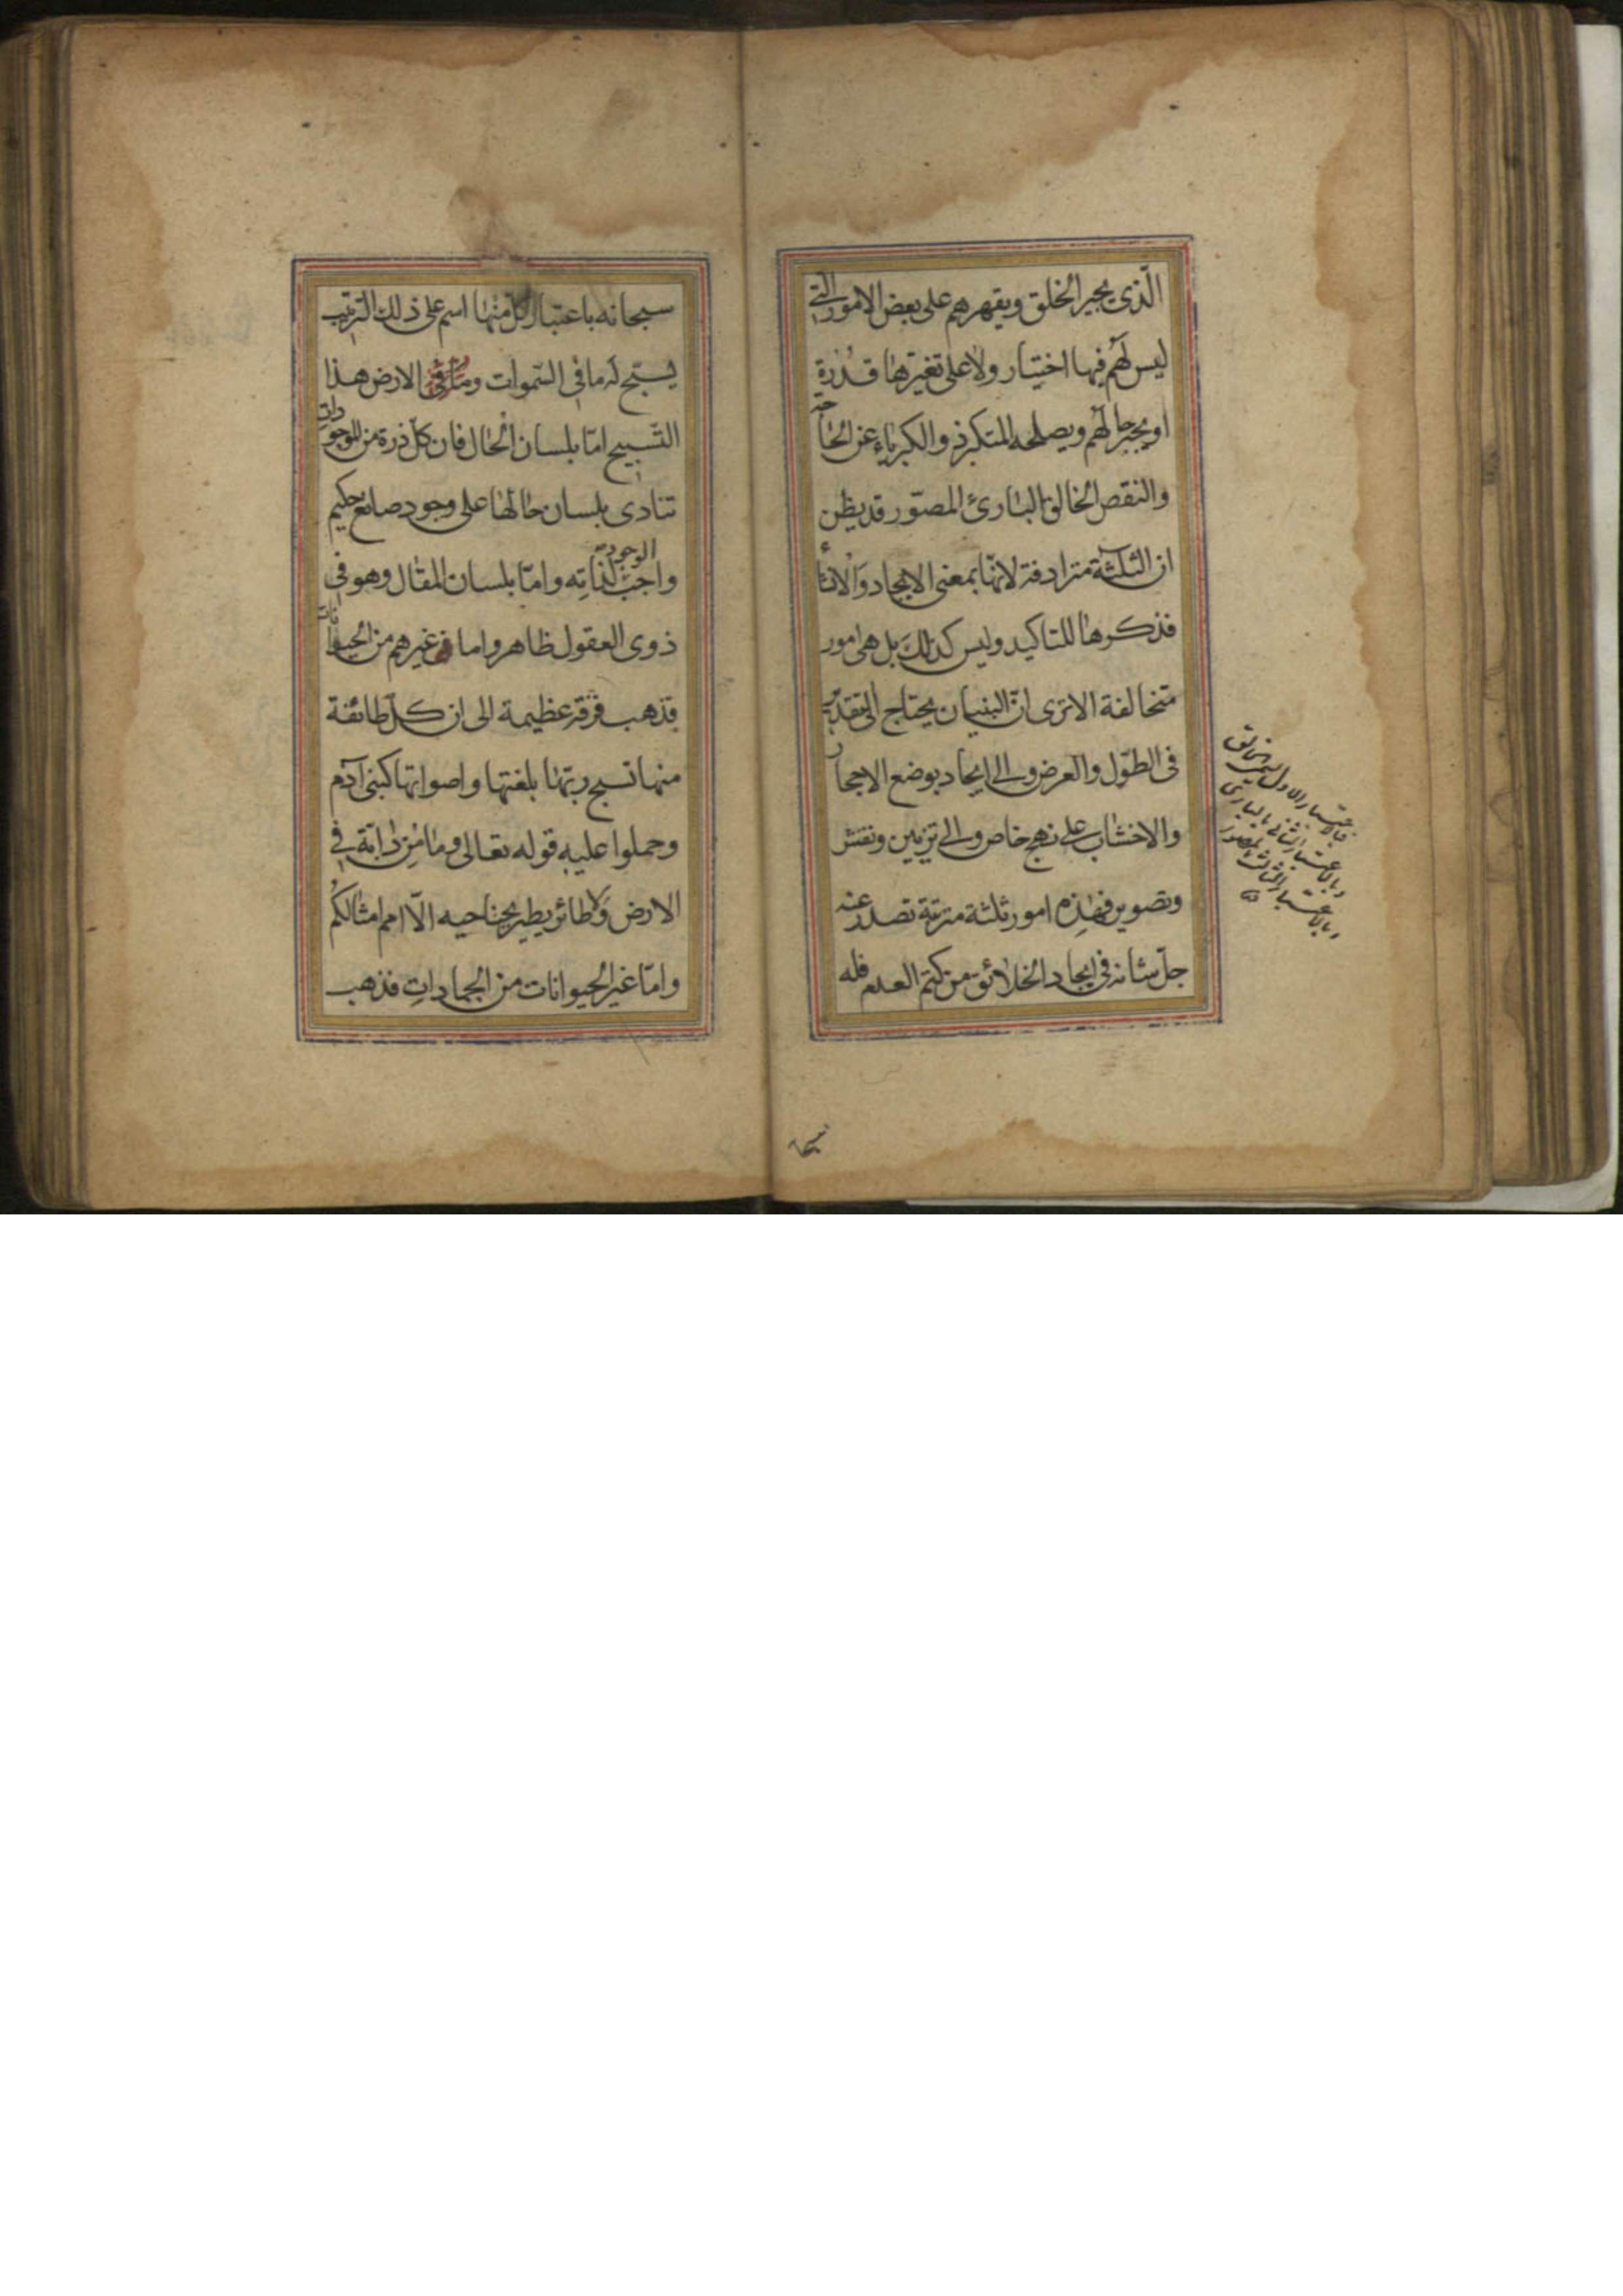 الّذى يجبر الخلق ويقهرهم على بعض الامور الّتى
ليس لَهُم فيها اختيار ولا على تغيّرها قدرة
او يجبر حالَهُم ويصلحه المتكبر ذو الكبرياء عن الحاجة
والنقص الخالق البارئ المصوّر قد يظن
ان الثلثة مترادفة لانّها بمعنى الايجاد والانشاء
فذكرها للتاكيد وليس كذلك بل هى امور
متخالفة الا ترى انّ البنيان يحتاج الى تقدير
فى الطّول والعرض والى ايجاد بوضع الاحجار
والاخشاب على نهج خاص والى تزيين ونقش
وتصوير فهذِه امور ثلثة مترتبة تصدر عنه
جلّ شانه فى ايجاد الخلائق من كتم العدم فله
فبالاعتبار الاول
وبالاعتبار الثانى بالبارئ
وبالاعتبار الثالث
سبحانه باعتبار كلّ منها اسم على ذلك الترتيب
يسبّح له ما فى السّموات وما فى الارض هذا
التّسبيح امّا بلسان الحال فان كلّ ذرة من الموجودات
تنادى بلسان حالها على وجود صانع حكيم
واجب الوجود لذاتِه وامّا بلسان المقال وهو فى
ذوى العقول ظاهر واما فى غيرهم من الحيوانات
فذهب فرقة عظيمة الى ان كلّ طائفة
منها تسبح ربّها بلغتها واصواتها كبنى آدم
وحملوا عليه قوله تعالى وما مِن دابّة فى
الارض وَلا طائر يطير بجناحيه الّا امم امثالكُم
وامّا غير الحيوانات من الجمادات فذهب